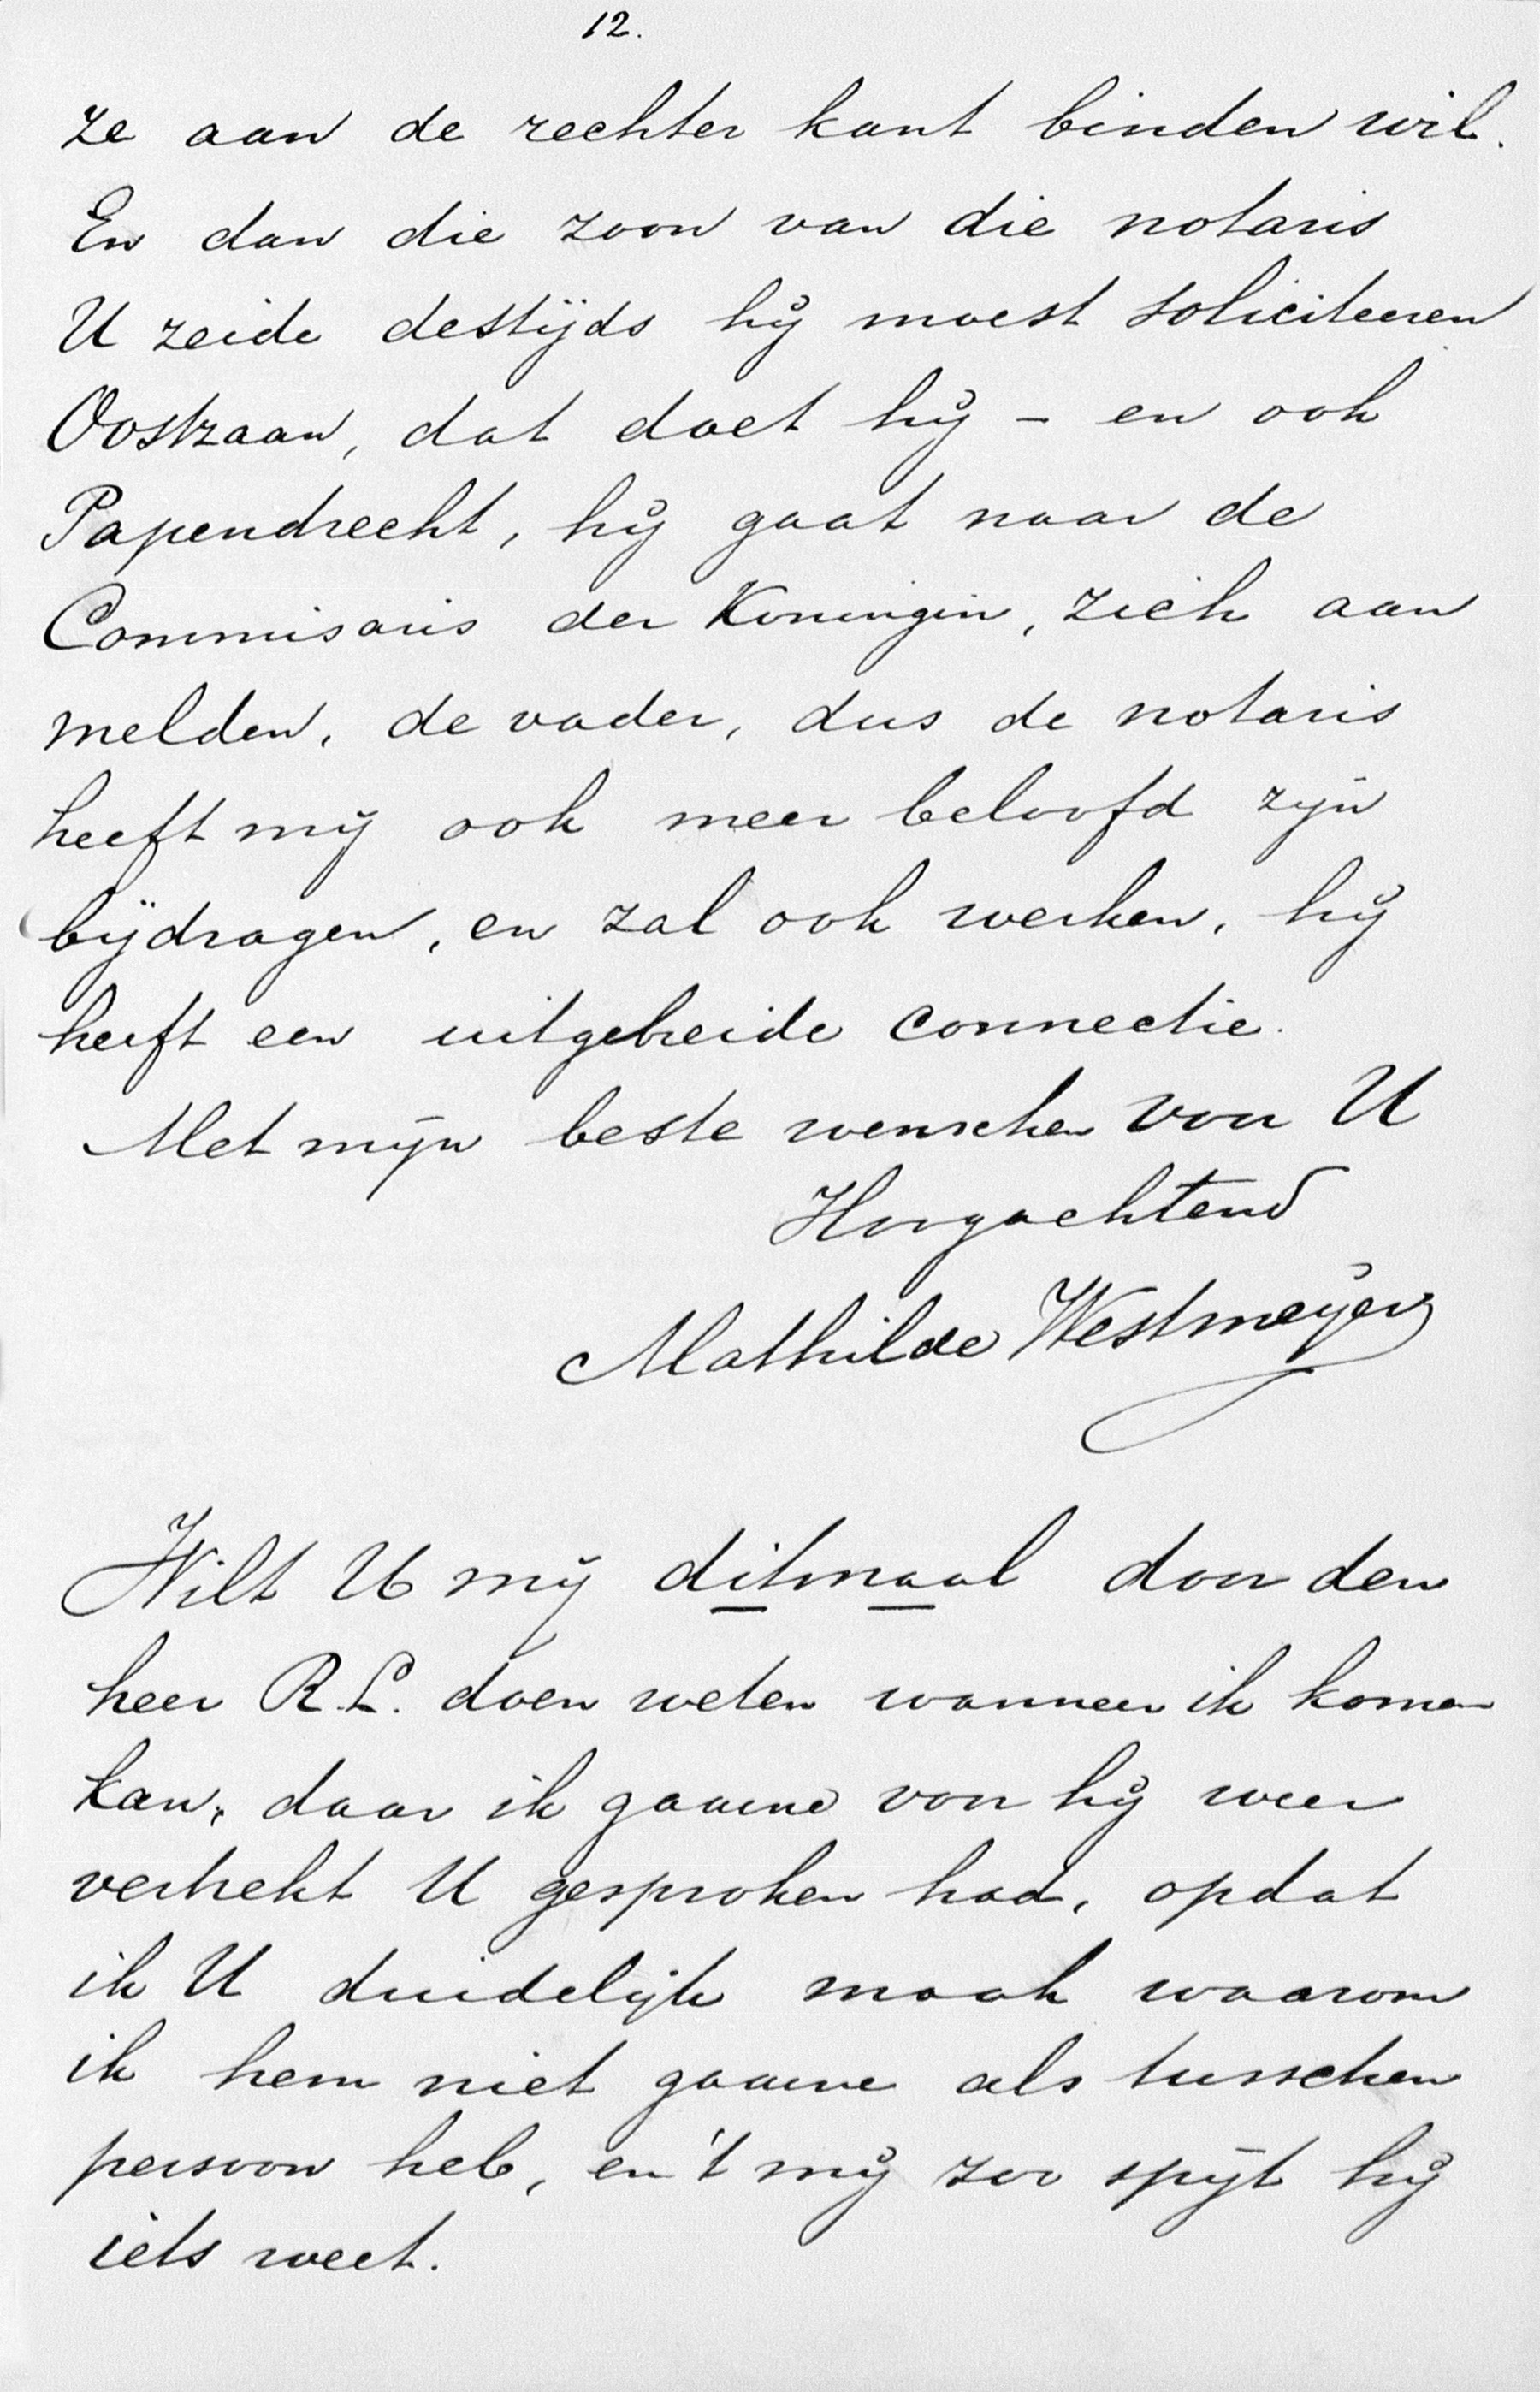 12.
ze aan de rechter kant binden wil.
En dan die zoon van die notaris
U zeide destijds hij moest soliciteeren
Oostzaan, dat doet hij – en ook
Papendrecht, hij gaat naar de
Commisaris der Koningin, zich aan
melden, de vader, dus de notaris
heeft mij ook meer beloofd zijn
bijdragen, en zal ook werken, hij
heeft een uitgebreide connectie.
Met mijn beste wenschen voor U
Hoogachtend
Mathilde Westmeijer
Wilt U mij ditmaal door den
heer R.L. doen weten wanneer ik komen
kan, daar ik gaarne voor hij weer
vertrekt U gesproken had, opdat
ik U duidelijk maak waarom
ik hem niet gaarne als tusschen
persoon heb, en 't mij zoo spijt hij
iets weet.